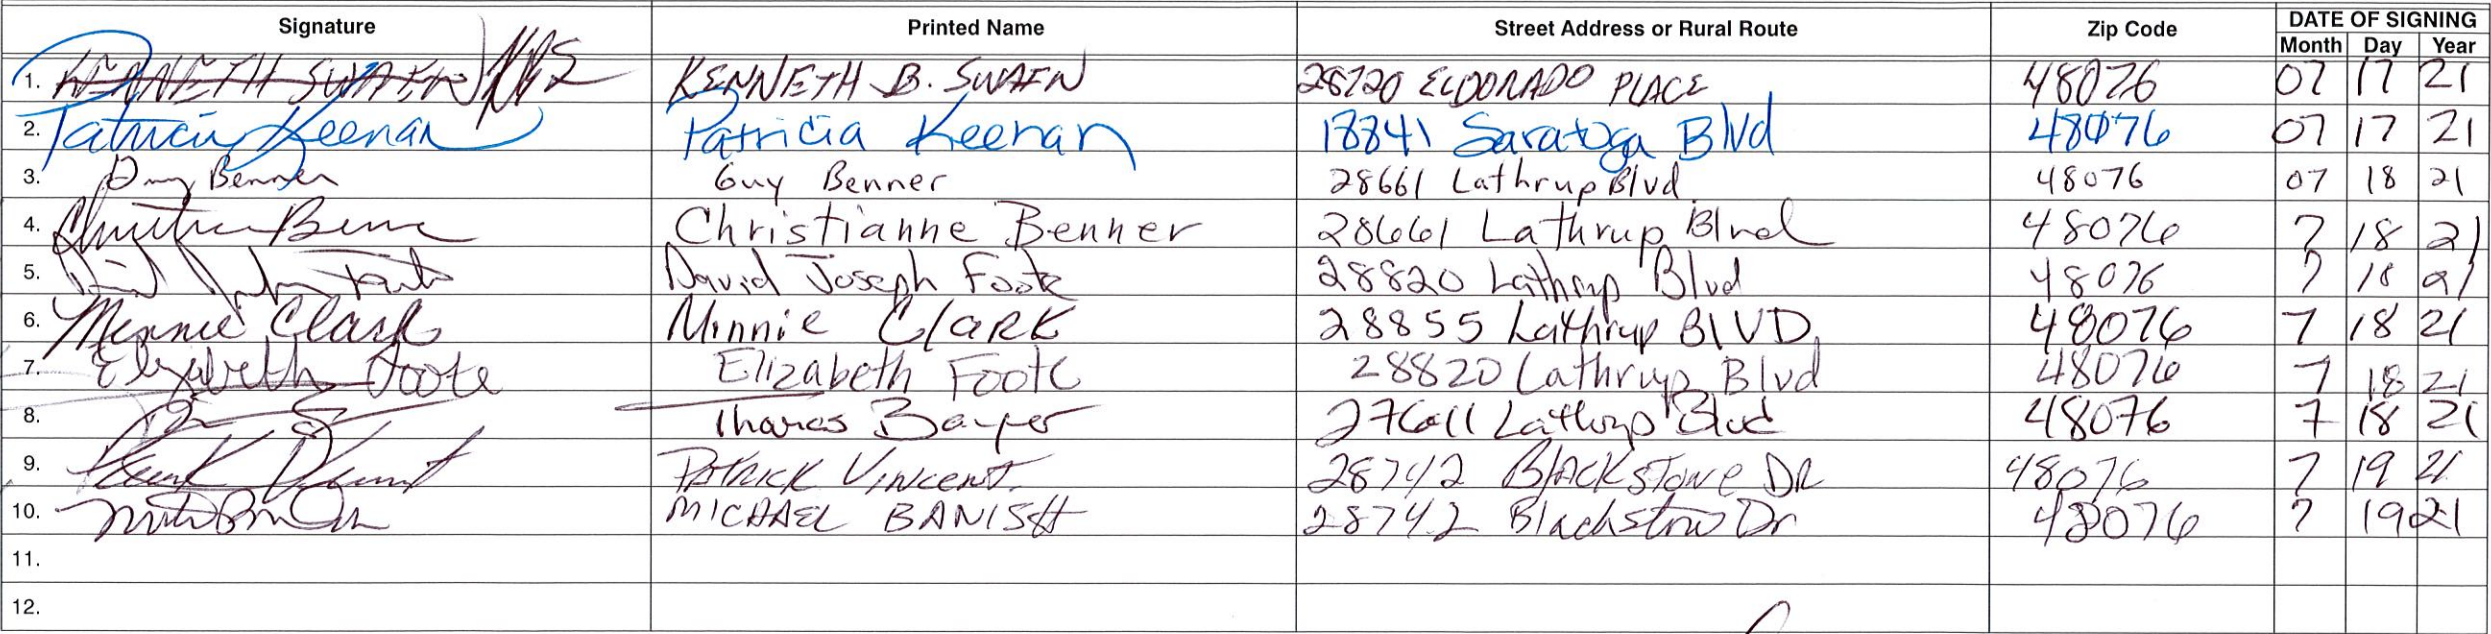 Signature Printed Name Street Address or Rural Route Zip Code DATE OF SIGNING
Month Day Year
1. KENNETH SWAEN KBS KENNETH B. SWAEN 28720 ELDORADO PLACE 48076 07 17 21
2. Patricia Keenan Patricia Keenan 18841 Saratoga Blvd 48076 07 17 21
3. Guy Benner Guy Benner 28661 Lathrup Blvd 48076 07 18 21
4. Christianne Benner 28661 Lathrup Blvd 48076 7 18 21
5. David Joseph Foote 28820 Lathrup Blvd 48076 7 18 21
6. Minnie Clark Minnie Clark 28855 Lathrup BLVD. 48076 7 18 21
7. Elizabeth Foote Elizabeth Foote 28820 Lathrup Blvd 48076 7 18 21
8. Lathrup Blvd 48076 7 18 21
9. PATRICK VINCENT 28742 BlACKSTONE DR 48076 7 19 21
10. MICHAEL BANISH 28742 Blackstone Dr 48076 7 19 21
11.
12.